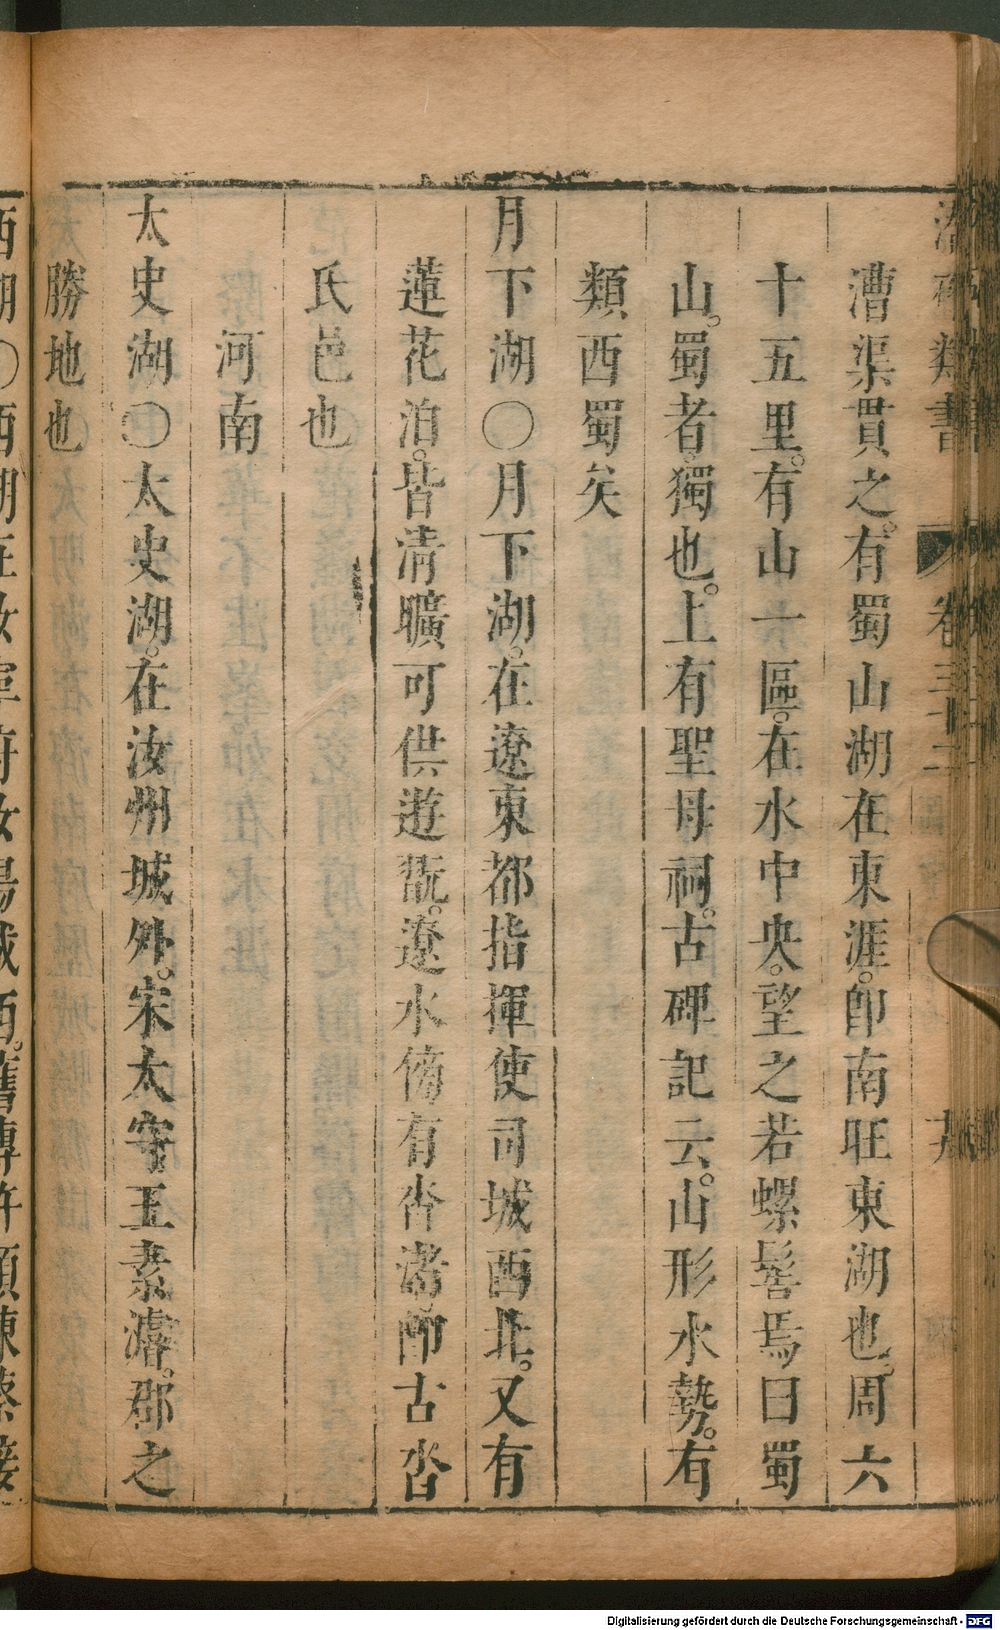 類書
卷三十二
漕渠貫之。有蜀山湖在東涯。卽南旺東湖也。周六
十五里。有山一區。在水中央。望之若螺髻焉曰蜀
山。蜀者獨也。上有聖母祠。古碑記云。山形水勢。有
類西蜀矣
月下湖〇月下湖。在遼東都指揮使司城西北。又有
蓮花泊。皆清曠可供遊翫。遼水傍有沓渚卽古沓
氏邑也
河南
太史湖〇太史湖。在汝州城外。宋太守王素濬。郡之
勝地也
西湖〇西湖在汝寧府汝陽城西。舊傳許頎陳蔡
Digitalisierung gefördert durch die Deutsche Forschungsgemeinschaft - DFG